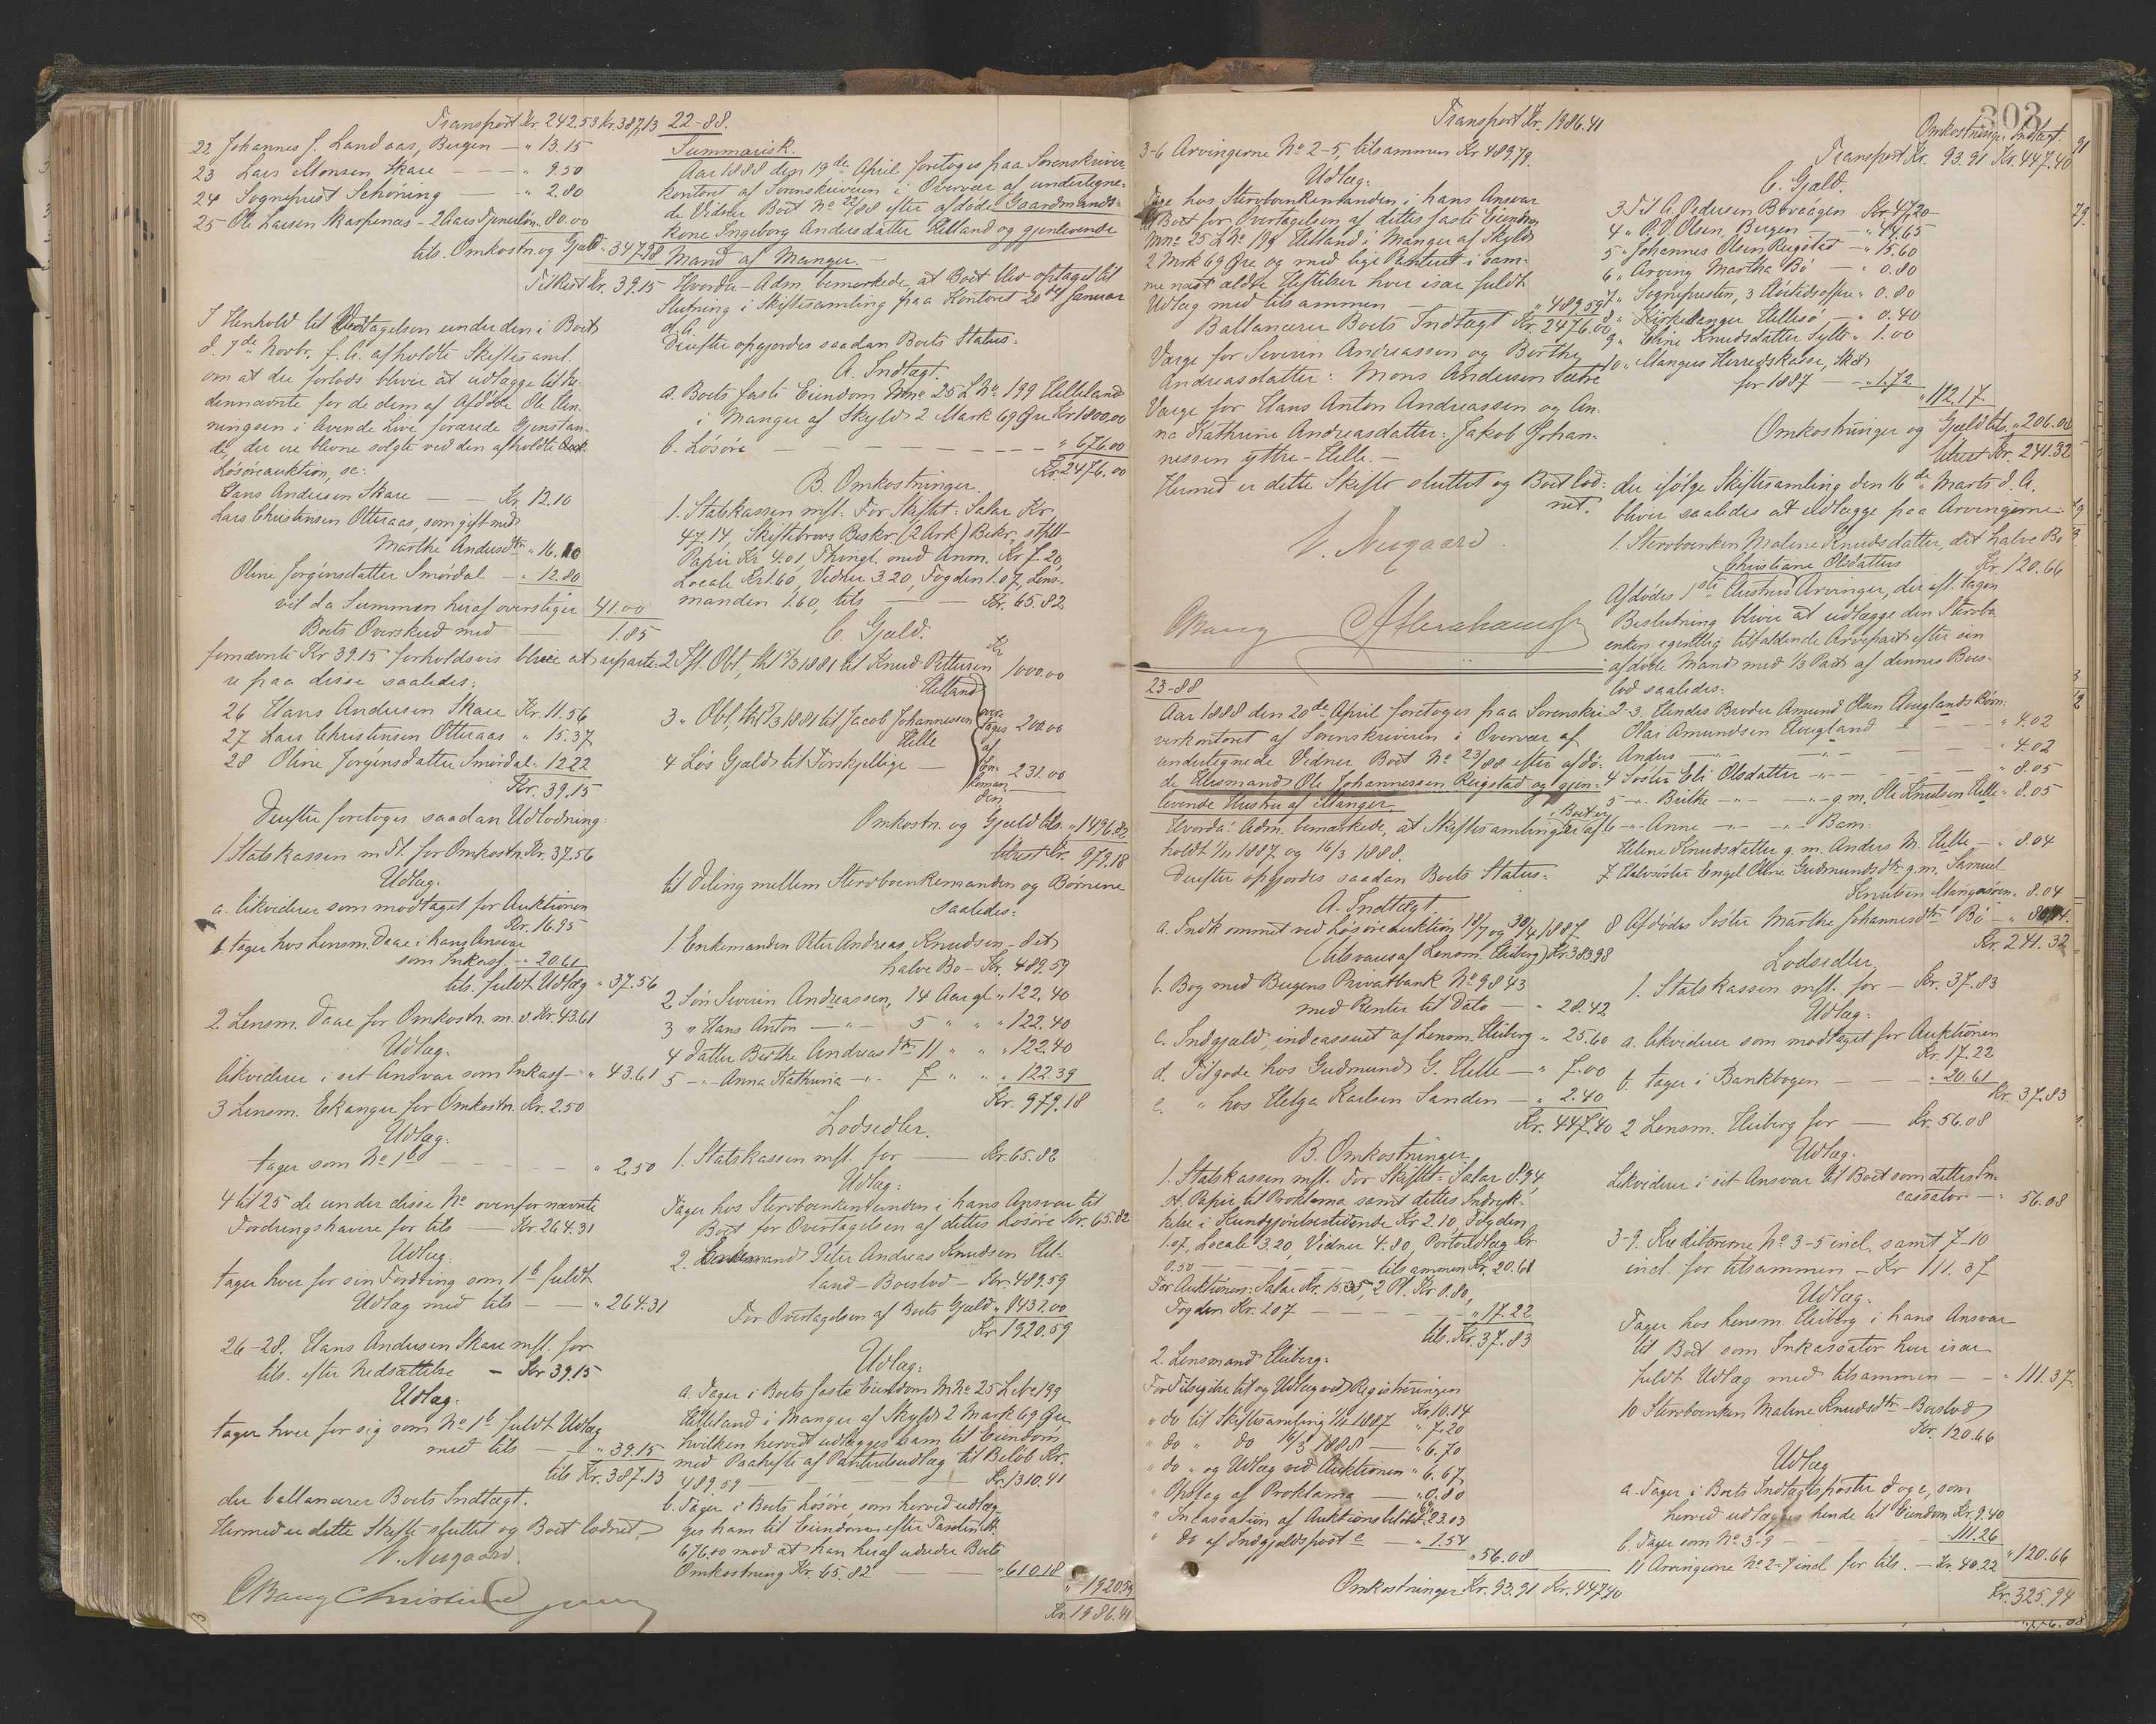 Transport Kr. 242.53 Kr. 387.13
22 Johannes J. Landaas, Bergen — " 13.15
23 Lars Monsen Skare — — " 9.50
24 Sogneprest Schöning — — " 2.80
25 Ole Larsen Skarpenæs - 2 Aars Tjenerløn " 80.00
tils. Omkostn. og Gjæld " 347.98
Til Rest Kr. 39.15
I Henhold til Vedtagelsen under den i Boets
d. 7de Novbr. f. A. afholdte Skiftesaml.
om at der forlods bliver at udlægge til ne-
dennævnte for de dem af Afdøde Ole Hen-
ningsen i levende Live forærede Gjenstan-
de, der ere blevne solgte ved den afholdte
Løsøreauktion, sc:
Hans Andersen Skare — — Kr. 12.10
Lars Christensen Otteraas, som gift med
Marthe Andersdtr " 16.10
Oline Jørgensdatter Smørdal — " 12.80
vil da Summen heraf overstiger 41.00
Boets Overskud med — 1.85
fornævnte Kr 39.15 forholdsvis blive at reparte-
re paa disse saaledes:
26 Hans Andersen Skare Kr. 11.56
27 Lars Christensen Otteraas " 15.37
28 Oline Jørgensdatter Smørdal " 12.22
Kr. 39.15
Derefter foretoges saadan Udlodning:
1 Statskassen m. fl. for Omkostn. Kr. 37.56
Udlæg:
a. likviderer som modtaget for Auktionen
Kr. 16.95
b. tager hos Lensm. Daae i hans Ansvar
som Inkass. — " 20.61
tils. fuldt Udlæg " 37.56
2. Lensm. Daae for Omkostn. m. v. Kr. 43.61
Udlæg:
likviderer i sit Ansvar som Inkass. — " 43.61
3 Lensm. Ekanger for Omkostn. Kr. 2.50
Udlæg:
tager som No 1 b — — — " 2.50
4 til 25 de under disse No ovenfor nævnte
Fordringshavere for tils — Kr. 264.31
Udlæg:
tager hver for sin Fordring som 1 b fuldt
Udlæg med tils — — " 264.31
26-28. Hans Andersen Skare mfl. for
tils. efter Nedsættelse — Kr 39.15
Udlæg:
tager hver for sig som No 1 b fuldt Udlæg
med tils — " 39.15
tils Kr. 387.13
der ballancerer Boets Indtægt.
Hermed er dette Skifte sluttet og Boet lodnet.
V. Neegaard.
22-88.
Summarisk.
Aar 1888 den 19de April foretoges paa Sorenskriver-
kontoret af Sorenskriveren i Overvær af undertegne-
de Vidner Boet No 22/88 efter afdøde Gaardmands-
kone Ingeborg Andersdatter Helland og gjenlevende
Mand af Manger. —
Hvorda: Adm. bemærkede, at Boet blev optaget til
Slutning i Skiftesamling paa Kontoret 20de Januar
d. A.
Derefter opgjordes saadan Boets Status:
A. Indtægt.
a. Boets faste Eiendom Mno 25 L No 199 Helleland
i Manger af Skyld 2 Mark 69 Øre Kr 1800.00
b. Løsøre — — — — — " 676.00
Kr. 2476.00
B. Omkostninger.
1. Statskassen mfl. For Skiftet: Salar Kr.
47.14, Skiftebrevs Beskr. (2 Ark) Bekr., stplt
Papir Kr 4.01, Thingl. med Anm. Kr 7.20,
Locale Kr 1.60, Vidner 3.20, Fogden 1.07, Lens-
manden 1.60, tils — — Kr. 65.82
C. Gjæld.
2 Iflg. Obl., thl 15/3 1881 til Knud Pettersen Helland Kr 1000.00
3 " Obl., thl 15/3 1881 til Jacob Johannessen Helle 200.00
4 Løs Gjæld til Forskjellige — 231.00
Omkostn. og Gjæld tils. " 1496.82
Urest Kr. 979.18
til Deling mellem Stervboenkemanden og Børnene
saaledes:
1. Enkemanden Peter Andreas Knudsen — det
halve Bo — Kr. 489.59
2 Søn Severin Andreassen, 14 Aar gl. " 122.40
3 " Hans Anton — " — 5 " " " 122.40
4 datter Berthe Andreasdtr 11 " " " 122.40
5 — " — Anna Kathrina — " 7 " " " 122.39
Kr. 979.18
Lodsedler.
1. Statskassen mfl. for — Kr. 65.82
Udlæg:
Tager hos Stervboenkemanden i hans Ansvar til
Boet for Overtagelsen af dettes Løsøre Kr. 65.82
2. Enkemand Peter Andreas Knudsen Hel-
land — Boeslod — Kr. 489.59
For Overtagelsen af Boets Gjæld " 1431.00
Kr 1920.59
Udlæg:
a. Tager i Boets faste Eiendom MNo 25 L No 199
Helleland i Manger af Skyld 2 Mark 69 Øre
hvilken herved udlægges ham til Eiendom
med Prahefte af Panteretsudlæg til Beløb Kr.
489.59 — — Kr. 1310.41
b. Tager i Boets Løsøre, som herved udlæg-
ges ham til Eiendom efter Taxten Kr.
676.00 mod at han heraf udreder Boets
Omkostning Kr. 65.82 — " 610.18
" 1920.59
Kr. 1986.41
Transport Kr. 1986.41
3-6 Arvingerne No 2-5, tilsammen Kr 489.59.
Udlæg:
Tage hos Stervboenkemanden i hans Ansvar
til Boet for Overtagelsen af dettes faste Eiendom
Mno 25 L No 199 Helland i Manger af Skyld
2 Mrk 69 Øre og med lige Panteret i sam-
me næst ældre Heftelser hver især fuldt
Udlæg med tilsammen — " 489.59
Ballancerer Boets Indtægt Kr. 2476.00
Værge for Severin Andreassen og Berthe
Andreasdatter: Mons Andersen Sætre
Værge for Hans Anton Andreassen og An-
na Kathrine Andreasdatter: Jakob Johan-
nessen yttre-Helle. —
Hermed er dette Skifte sluttet og Boet lod-
net.
V. Neegaard.
23-88
Aar 1888 den 20de April foretoges paa Sorenskri-
verkontoret af Sorenskriveren i Overvær af
undertegnede Vidner Boet No 23/88 efter afdø-
de Husmand Ole Johannessen Reigstad og gjen-
levende Hustru af Manger.
Hvorda: Adm. bemærkede, at Skiftesamlinger i Boet er af-
holdt 1/11 1887 og 16/3 1888.
Derefter opgjordes saadan Boets Status:
A. Indtægt.
a. Indkommet ved Løsøreauktion
(tilsvares af Lensm. Heiberg) Kr 383.98
b. Bog med Bergens Privatbank No 9843
med Renter til Dato — " 28.42
c. Indgjæld, indcasseret af Lensm. Heiberg " 25.60
d. Tilgode hos Gudmund G. Helle — " 7.00
e. " hos Helga Karlsen Sanden — " 2.40
Kr. 447.40
B. Omkostninger.
1. Statskassen mfl. For Skiftet: Salar 8.94,
st. Papir til Proklama samt dettes Indryk-
kelse i Kundgjørelsestidende Kr 2.10, Fogden
1.07, Locale 3.20, Vidner 4.80, Portoudlæg Kr
0.50 — tilsammen Kr. 20.61
For Auktionen: Salar Kr. 15.35, 2 Pl. Kr 0.80,
Fogden Kr. 1.07 — — — " 17.22
tils. Kr. 37.83
2. Lensmand Heiberg:
For Tilsigelse til og Udlæg ved Registreringen
Kr. 10.14
" do til Skiftesamling 1/11 1887 " 7.20
" do " do 16/3 1888 — " 6.70
" do " og Udlæg ved Auktionen " 6.67
" Opslag af Proklama — " 0.80
" Incassation af Auktionsbeløbet 6% " 23.03
" do af Indgjældspost c — " 1.54
" 56.08
Omkostninger Kr. 93.91 Kr. 447.40
303
Omkostninger Indtægt.
Transport Kr. 93.91 Kr. 447.40
C. Gjæld.
3 Til A. Pedersen Bøvaagen Kr. 47.20
4 " P. D. Olsen, Bergen — " 44.65
5 " Johannes Olsen Reigstad — " 15.60
6 " Arving Martha Bø — " 0.80
7 " Sognepresten, 3 Høitidsoffre " 0.80
8 " Kirkesanger Hellesø — " 0.40
9 " Eline Knudsdatter Sylte " 1.00
10 " Mangers Herredskasse, Skat
for 1887 — " 1.72
" 112.17
Omkostninger og Gjæld tils. " 206.08
Urest Kr. 241.32
der ifølge Skiftesamling den 16de Marts d. A.
bliver saaledes at udlægge paa Arvingerne
1. Stervboenken Malene Knudsdatter, det halve Bo
Kr. 120.66
Christiane Olsdatters
Afdødes 1ste Hustrus Arvinger, der efl. tagen
Beslutning bliver at udlægge den Stervbo-
enken egentlig tilfaldende Arvepart efter sin
afdøde Mand med 1/3 Part af dennes Boes-
lod saaledes:
2-3. Hendes Broder Amund Olsen Hauglands Børn:
Olai Amundsen Haugland — — " 4.02
Anders — " — — " — — " 4.02
4 Søster Eli Olsdatter — " — — " 8.05
5 — " — Brithe — " — — " — g. m. Ole Knutsen Helle " 8.05
6 — " — Anne — " — — " — Barn:
Helene Knudsdatter g. m. Anders M. Helle — " 8.04
7 Halvsøster Engel Oline Gudmundsdtr g. m. Samuel
Knutsen Mangersøen " 8.04
8 Afdødes Søster Marthe Johannesdtr Bø — " 80.44
Kr. 241.32
Lodsedler.
1. Statskassen mfl. for — Kr. 37.83
Udlæg:
a. likviderer som modtaget for Auktionen
Kr. 17.22
b. tager i Bankbogen — — " 20.61
Kr. 37.83
2 Lensm. Heiberg for — Kr. 56.08
Udlæg:
Likviderer i sit Ansvar til Boet som dettes In-
cassator — " 56.08
3-9. Kreditorerne No 3-5 incl. samt 7-10
incl. for tilsammen — Kr 111.37
Udlæg:
Tager hos Lensm. Heiberg i hans Ansvar
til Boet som Inkassator hver især
fuldt Udlæg med tilsammen — — " 111.37
10 Stervboenken Malene Knudsdtr — Boeslod
Kr. 120.66
Udlæg
a. Tager i Boets Indtægtsposter d og e, som
herved udlægges hende til Eiendom Kr. 9.40
b. Tager som No 3-9 — — " 111.26
" 120.66
11 Arvingerne No 2-7 incl. for tils. — Kr. 40.22
Kr. 325.94